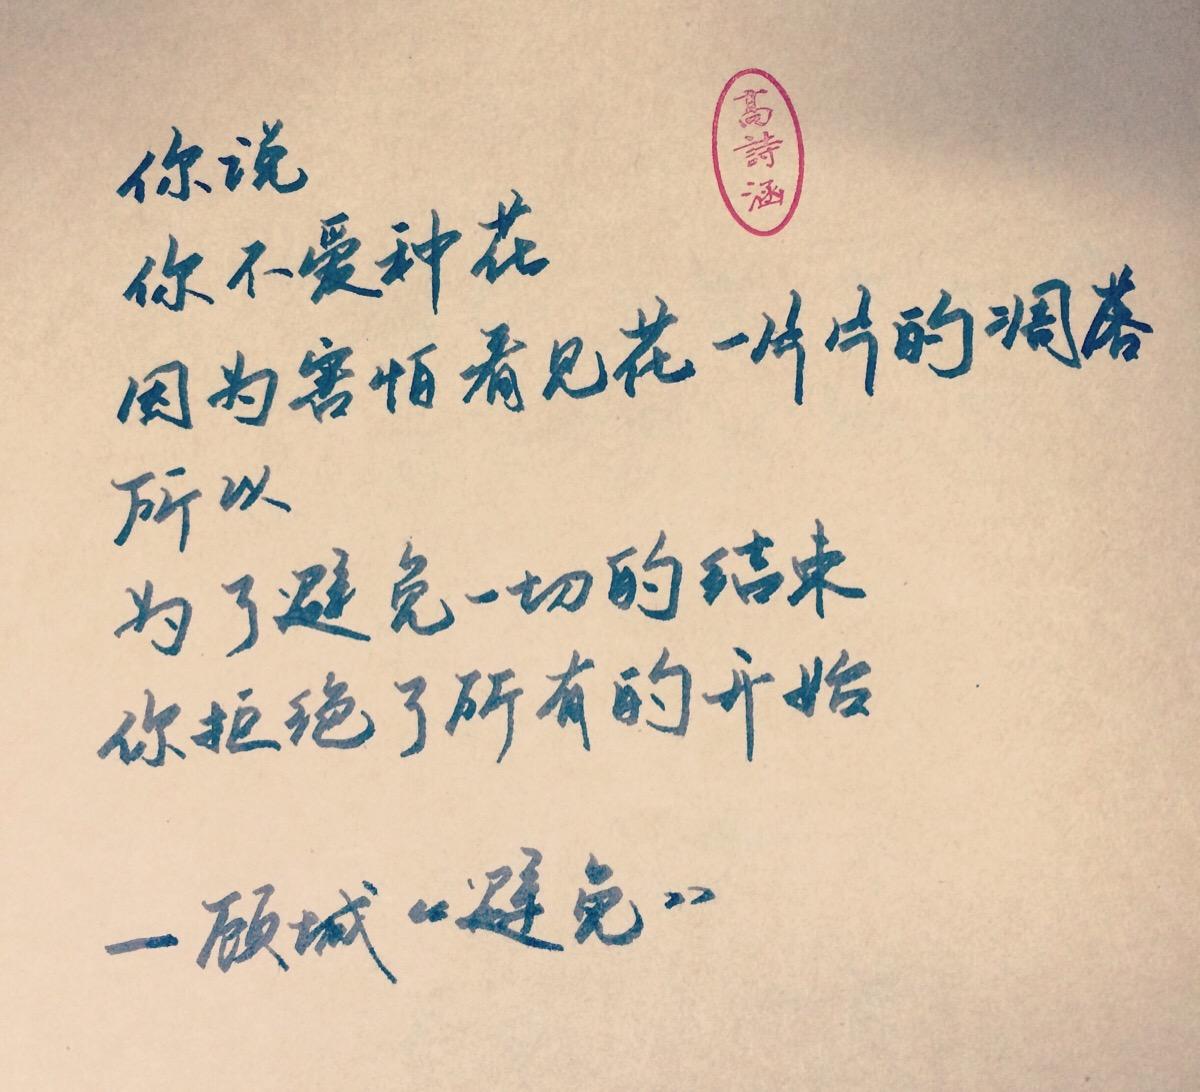 高詩涵
你说
你不爱种花
因为害怕看见花一片片的凋落
所以
为了避免一切的结束
你拒绝了所有的开始
—顾城《避免》